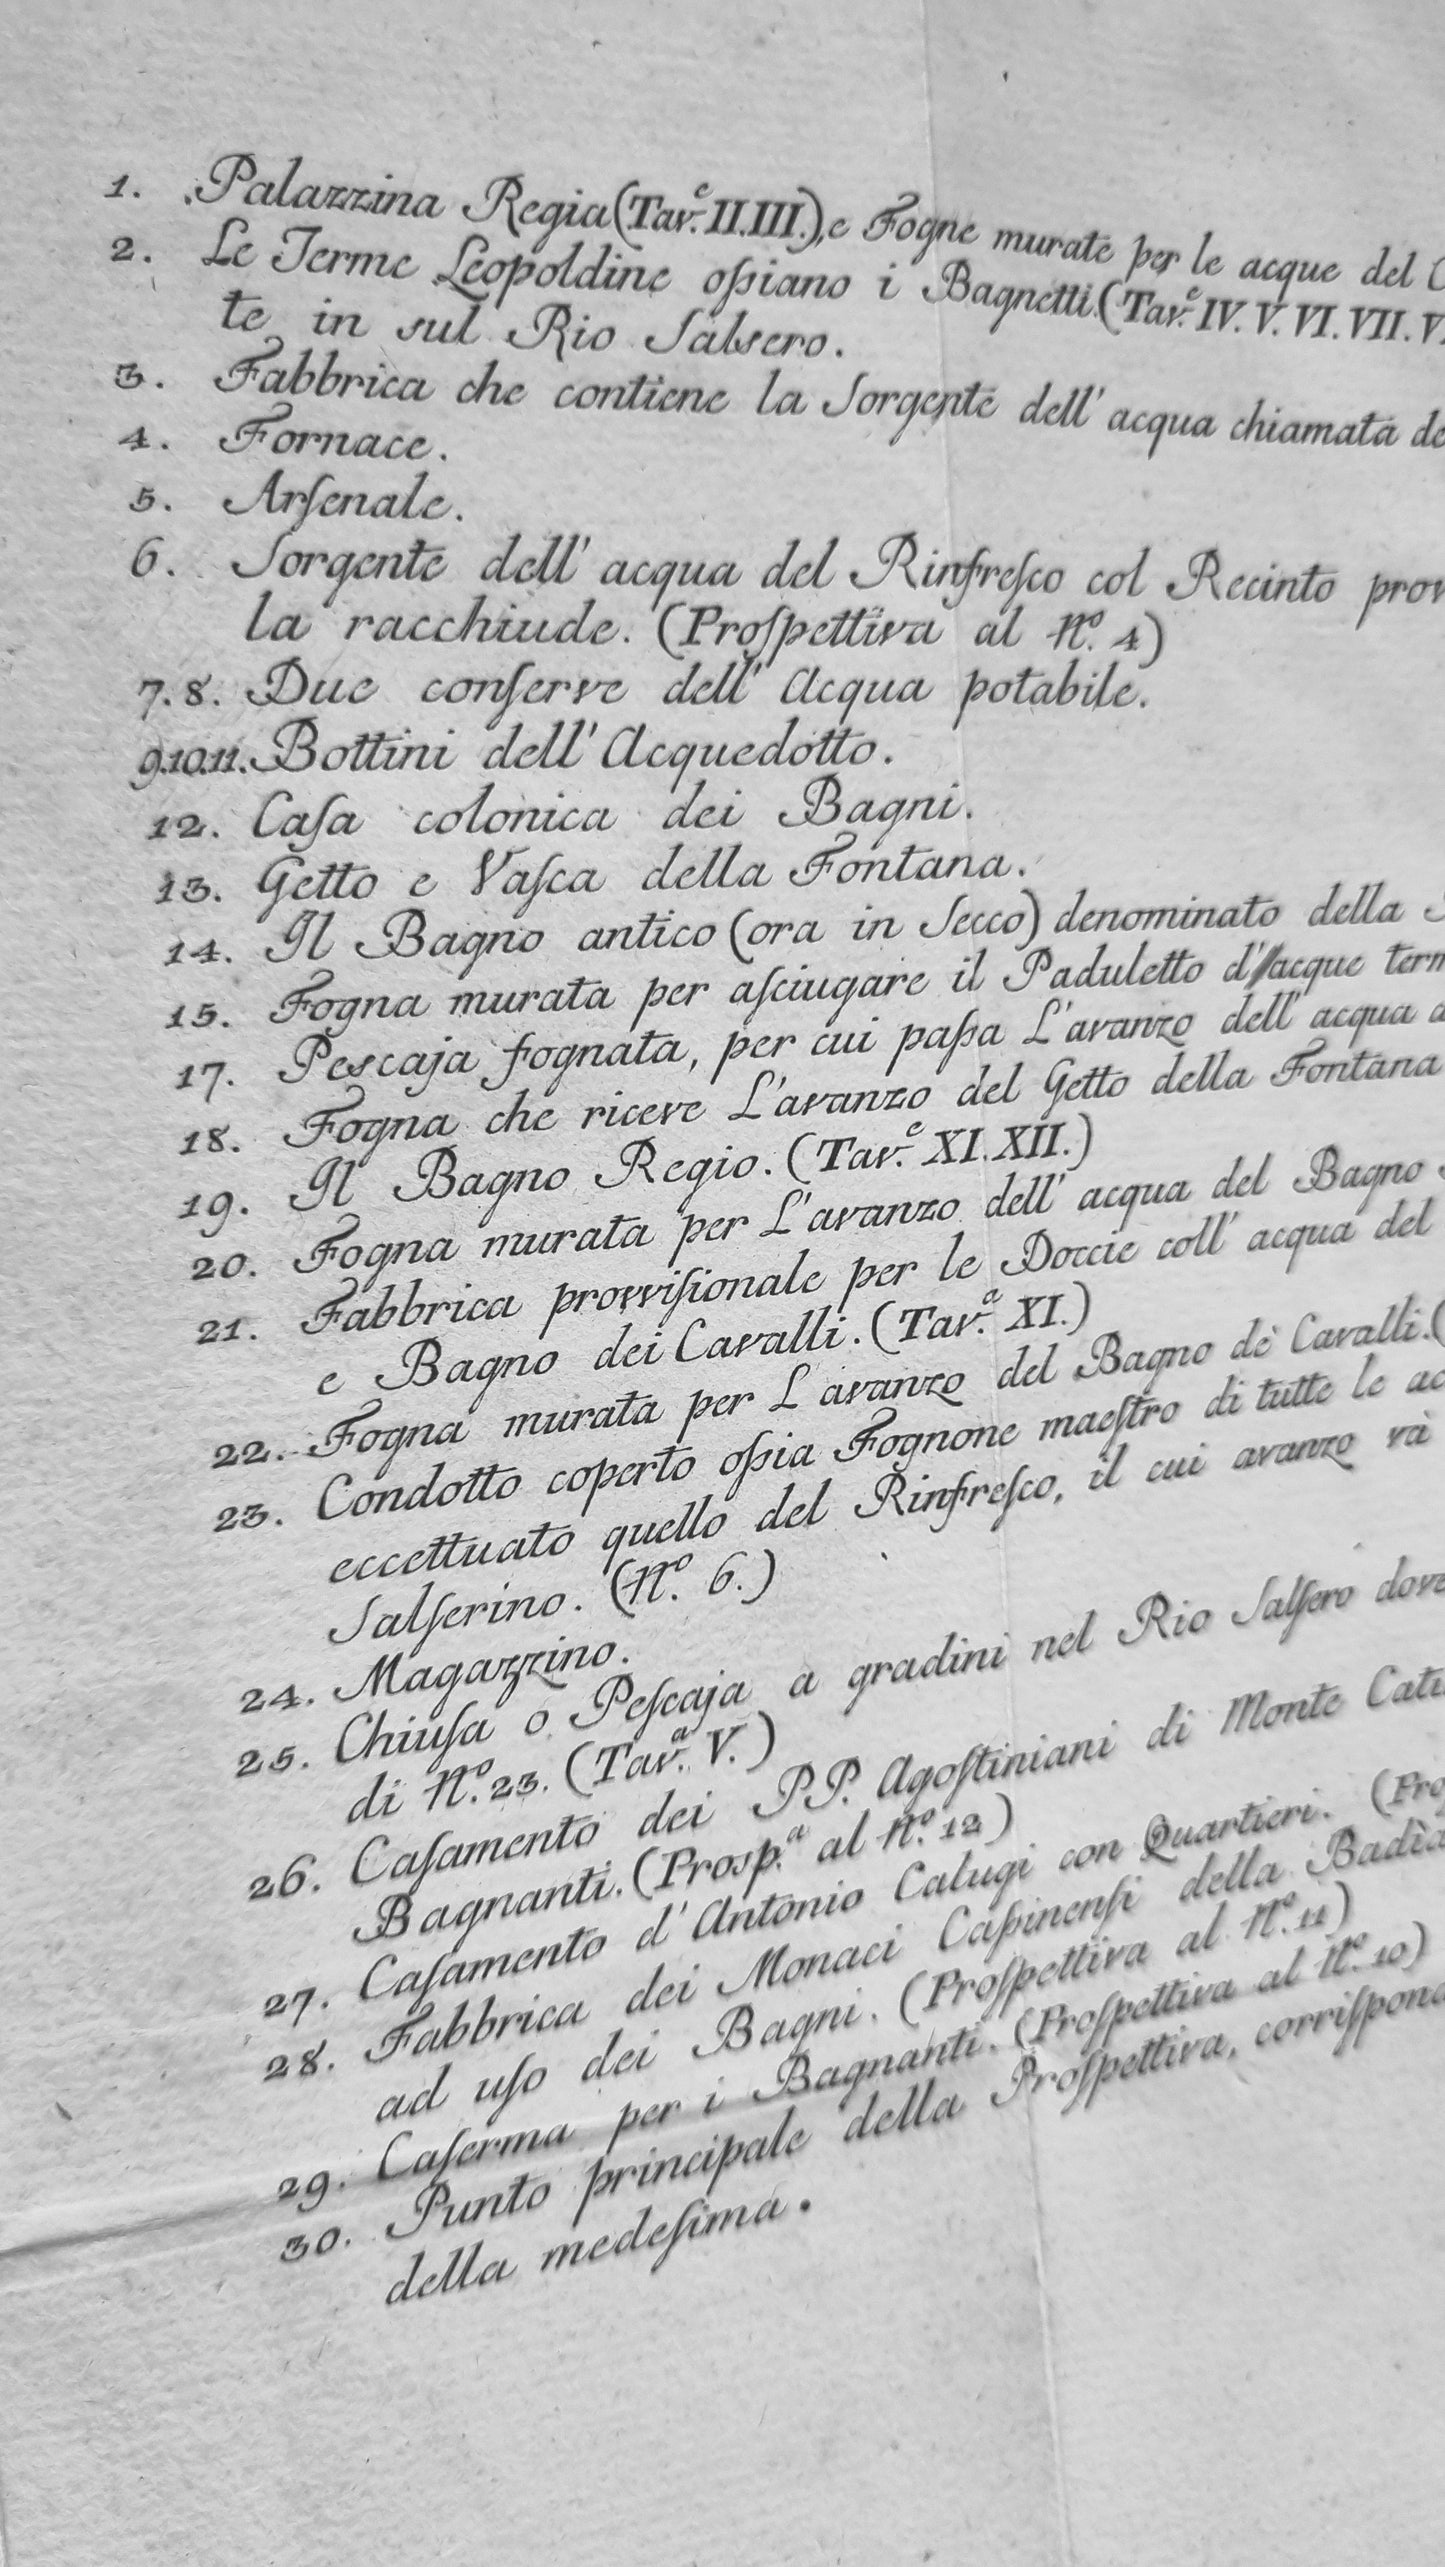 1. Palazzina Regia (Tav.e II. III.), e Fogne murate per le acque del
2. Le Terme Leopoldine oſsiano i Bagnetti. (Tav.e IV. V. VI. VII.
te in sul Rio Salsero.
3. Fabbrica che contiene la Sorgente dell' acqua chiamata
4. Fornace.
5. Arſenale.
6. Sorgente dell' acqua del Rinfreſco col Recinto
la racchiude. (Proſpettiva al N.o 4)
7. 8. Due conſerve dell' Acqua potabile.
9.10.11. Bottini dell' Acquedotto.
12. Caſa colonica dei Bagni.
13. Getto e Vaſca della Fontana.
14. Il Bagno antico (ora in Secco) denominato della
15. Fogna murata per aſciugare il Paduletto d'acque
17. Pescaja fognata, per cui paſsa L'avanzo dell' acqua
18. Fogna che riceve L'avanzo del Getto della Fontana
19. Il Bagno Regio. (Tav.e XI. XII.)
20. Fogna murata per L'avanzo dell' acqua del Bagno
21. Fabbrica provviſionale per le Doccie coll' acqua del
e Bagno dei Cavalli. (Tav.a XI.)
22. Fogna murata per L'avanzo del Bagno de' Cavalli. (
23. Condotto coperto oſsia Fognone maeſtro di tutte le
eccettuato quello del Rinfreſco, il cui avanzo và
Salſerino. (N.o 6.)
24. Magazzino.
25. Chiuſa o Peſcaja a gradini nel Rio Salſero dove
di N.o 23. (Tav.a V.)
26. Caſamento dei PP. Agoſtiniani di Monte
Bagnanti. (Prosp.a al N.o 12)
27. Caſamento d' Antonio Calugi con Quartieri.
28. Fabbrica dei Monaci Caſsinenſi della Badìa
ad uſo dei Bagni. (Proſpettiva al N.o 11)
29. Caſerma per i Bagnanti. (Proſpettiva al N.o 10)
30. Punto principale della Proſpettiva,
della medeſima.